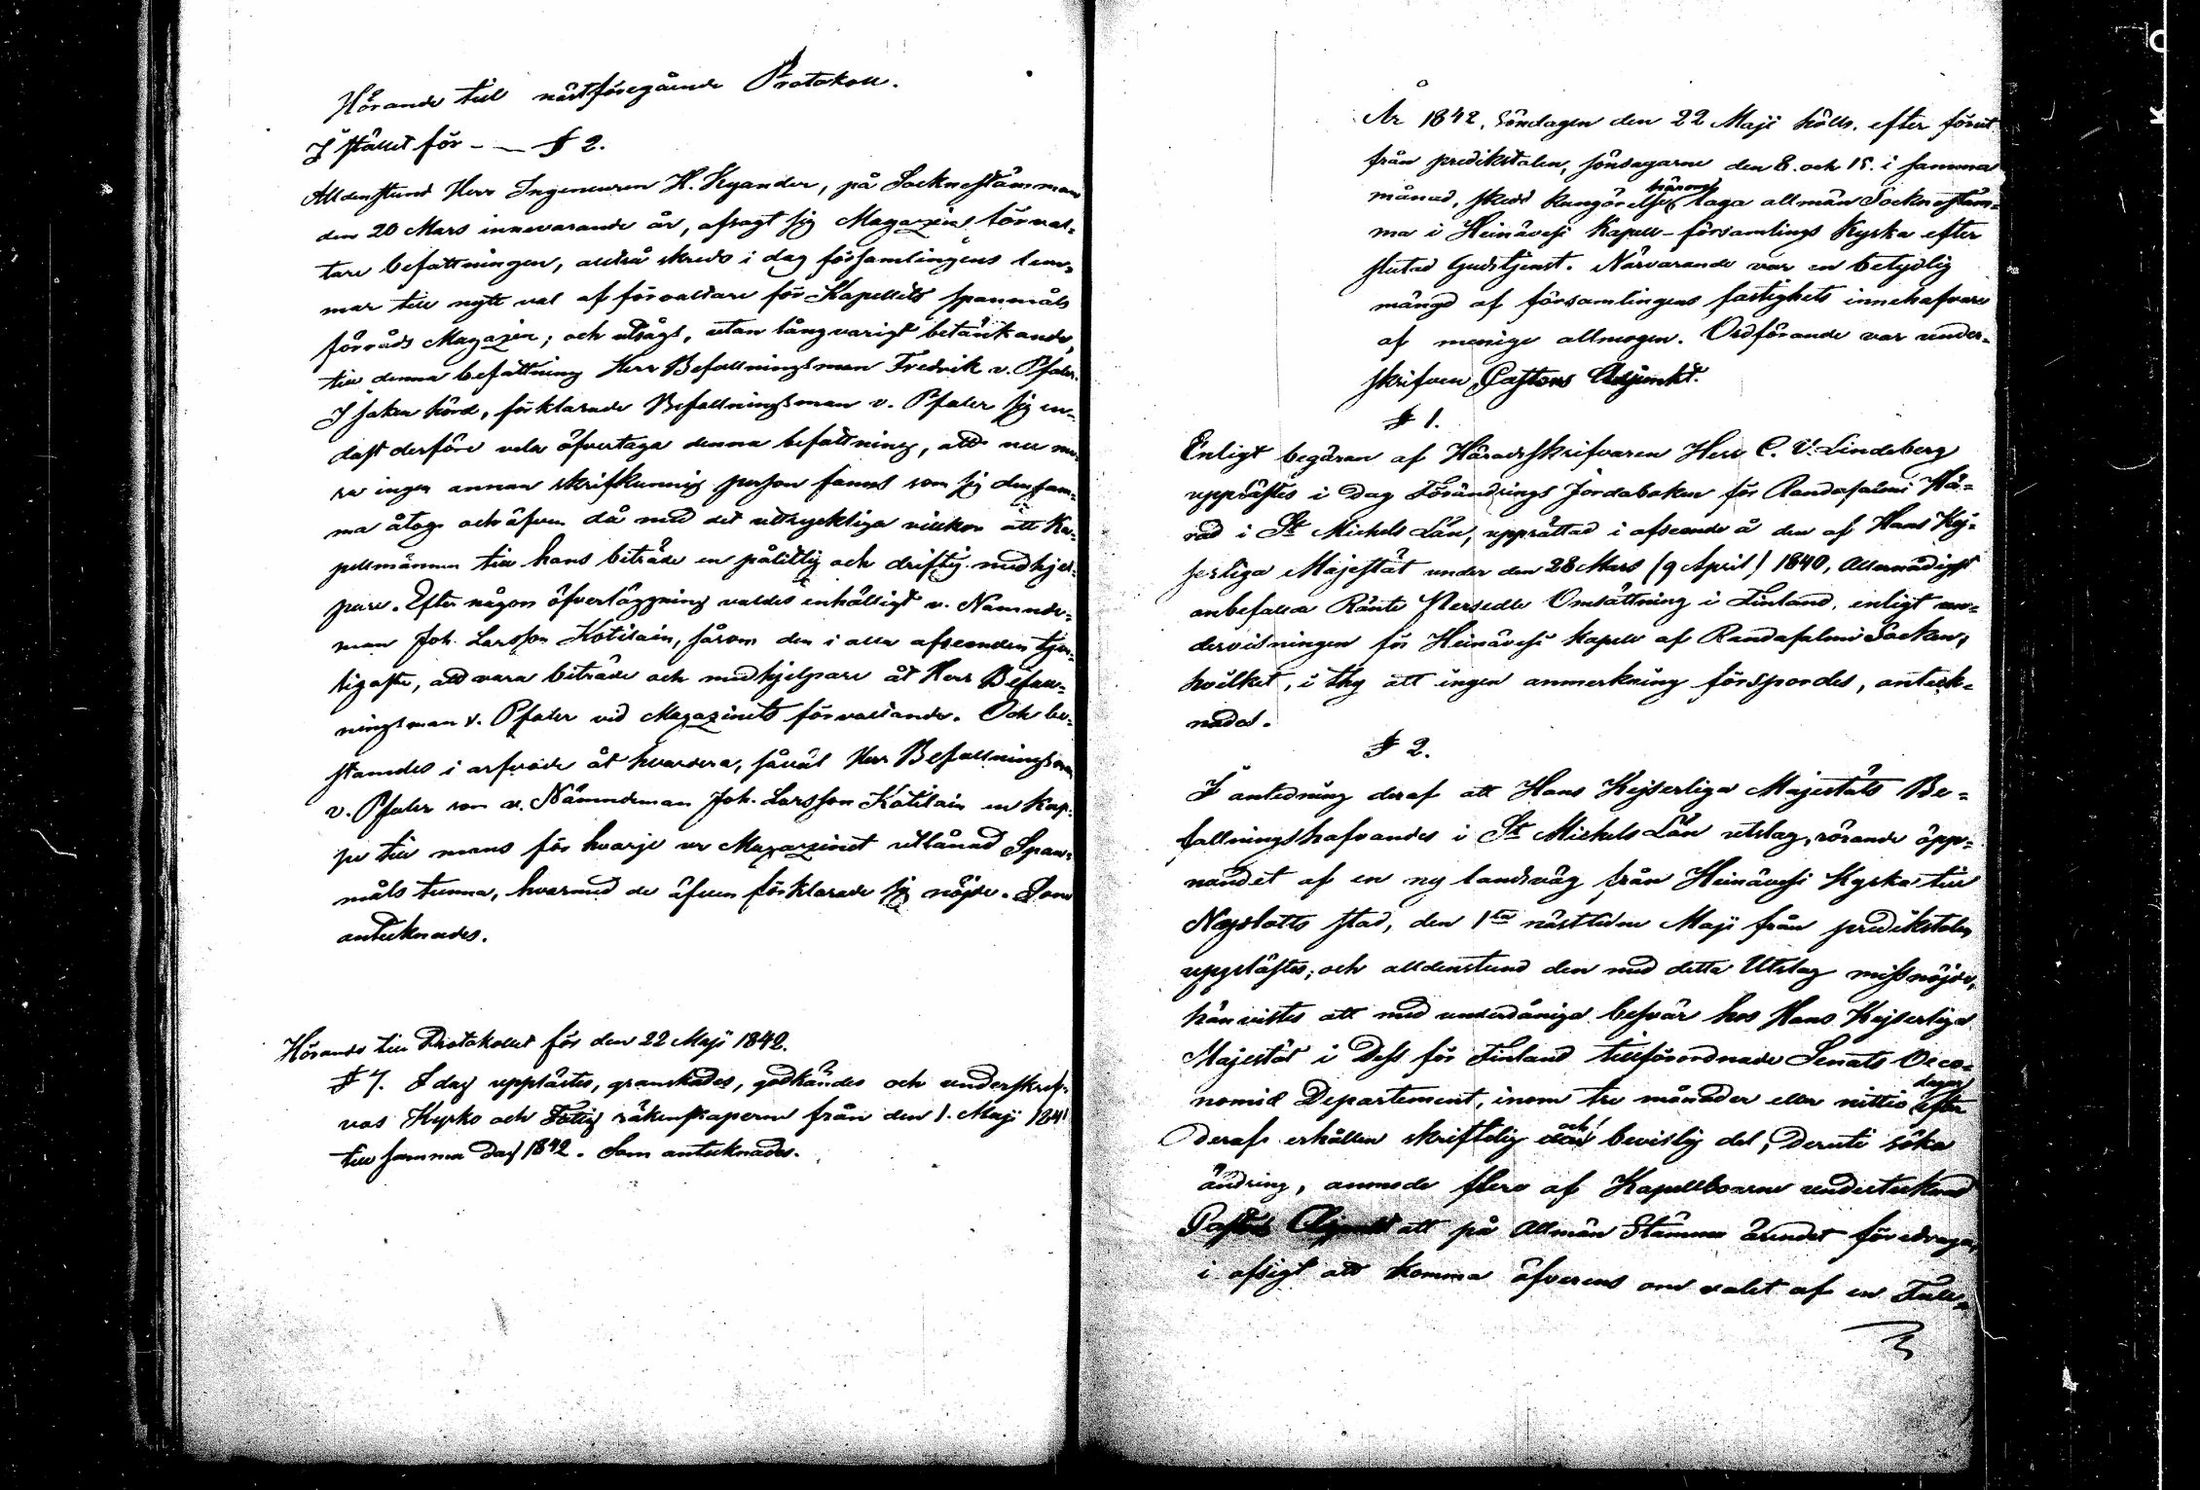 Hörande till nästföregående Protokoll.
I stället för - — § 2.
Alldenstund Herr Ingenieuren H. Kyander, på Sockne stämman
den 20 Mars innevarande år, afsagt sig Magazins förval-
tare befattningen, alltså skreds i dag församlingens lem-
mar till nytt val af förvaltare för Kapellets spanmåls
förråds Magazin; och utsågs, utan långvarigt betänkande,
till denna befattning Herr Befallningsman Fredrik v. Pfaler.
I saken hörd, förklarade Befallningsman v. Pfaler sig en-
dast derföre vela öfvertaga denna befattning, att nu me-
ra ingen annan skrifkunnig person fanns som sig densam-
ma åtog och äfven då med det uttryckliga villkor att Ka-
pellmännen till hans biträde en pålitlig och driftig medhjel-
pare. Efter någon öfverläggning valdes enhälligt v. Nämnde-
man Joh. Larsson Kotilain, såsom den i alla afseenden tjen-
ligaste, att vara biträde och medhjelpare åt Herr Befall-
ningsman v. Pfaler vid Magazinets förvaltande. Och be-
stämdes i arfvode åt hvardera, såväl Herr Befallningsman
v. Pfaler som v. Nämndeman Joh. Larsson Kotilain en kap-
pe till mans för hvarje ur Magazinet utlånad Span-
måls tunna, hvarmed de äfven förklarade sig nöjde. Som
antecknades.
Hörande till Protokollet för den 22 Maji 1842.
§ 7. I dag upplästes, granskades, godkändes och underskref-
vos Kyrko och Fattig räkenskaperne från den 1. Maji 1841
till samma dag 1842. Som antecknades.
År 1842, Söndagen den 22 Maji hölls, efter förut
från predikstolen, söndagarne den 8. och 15. i samma
månad, skedd kungörelse härom, laga allmän Sockenstäm-
ma i Heinävesi Kapell-församlings Kyrka efter
slutad Gudstjenst. Närvarande var en betydlig
mängd af församlingens fastighets innehafvare
af menige allmogen. Ordförande var under-
skrifven Pastors Adjunkt.
§ 1.
Enligt begäran af Häradsskrifvaren Herr C. V. Lindeberg
upplästes i dag Förändrings Jordaboken för Randasalmi Hä-
rad i St Michels Län, upprättad i afseende å den af Hans Kej-
serliga Majestät under den 28 Mars (9 April) 1840, Allernådigst
anbefallda Ränte Persedle Omsättning i Finland, enligt un-
dervisningen för Heinävesi kapell af Randasalmi Socken,
hvilket, i thy att ingen anmerkning förspordes, anteck-
nades.
§ 2.
I anledning deraf att Hans Kejserliga Majestäts Be-
fallningshafvandes i St Michels Län utslag, rörande öpp-
nandet af en ny landsväg från Heinävesi Kyrka till
Nyslotts stad, den 1sta nästledne Maji från predikstolen
upplästes; och alldenstund den med detta Utslag missnöjde,
hänvistes att med underdåniga besvär hos Hans Kejserliga
Majestät i Dess för Finland tillförordnade Senats Oeco-
nomie Departement, inom tre månader eller nittio dagar efter
deraf erhållen skriftelig och bevislig del, deruti söka
ändring, anmode flere af Kapellboerne undertecknad
Pastors Adjunkt att på Allmän Stämma ärendet föredraga,
i afsigt att komma öfverens om valet af en Full-